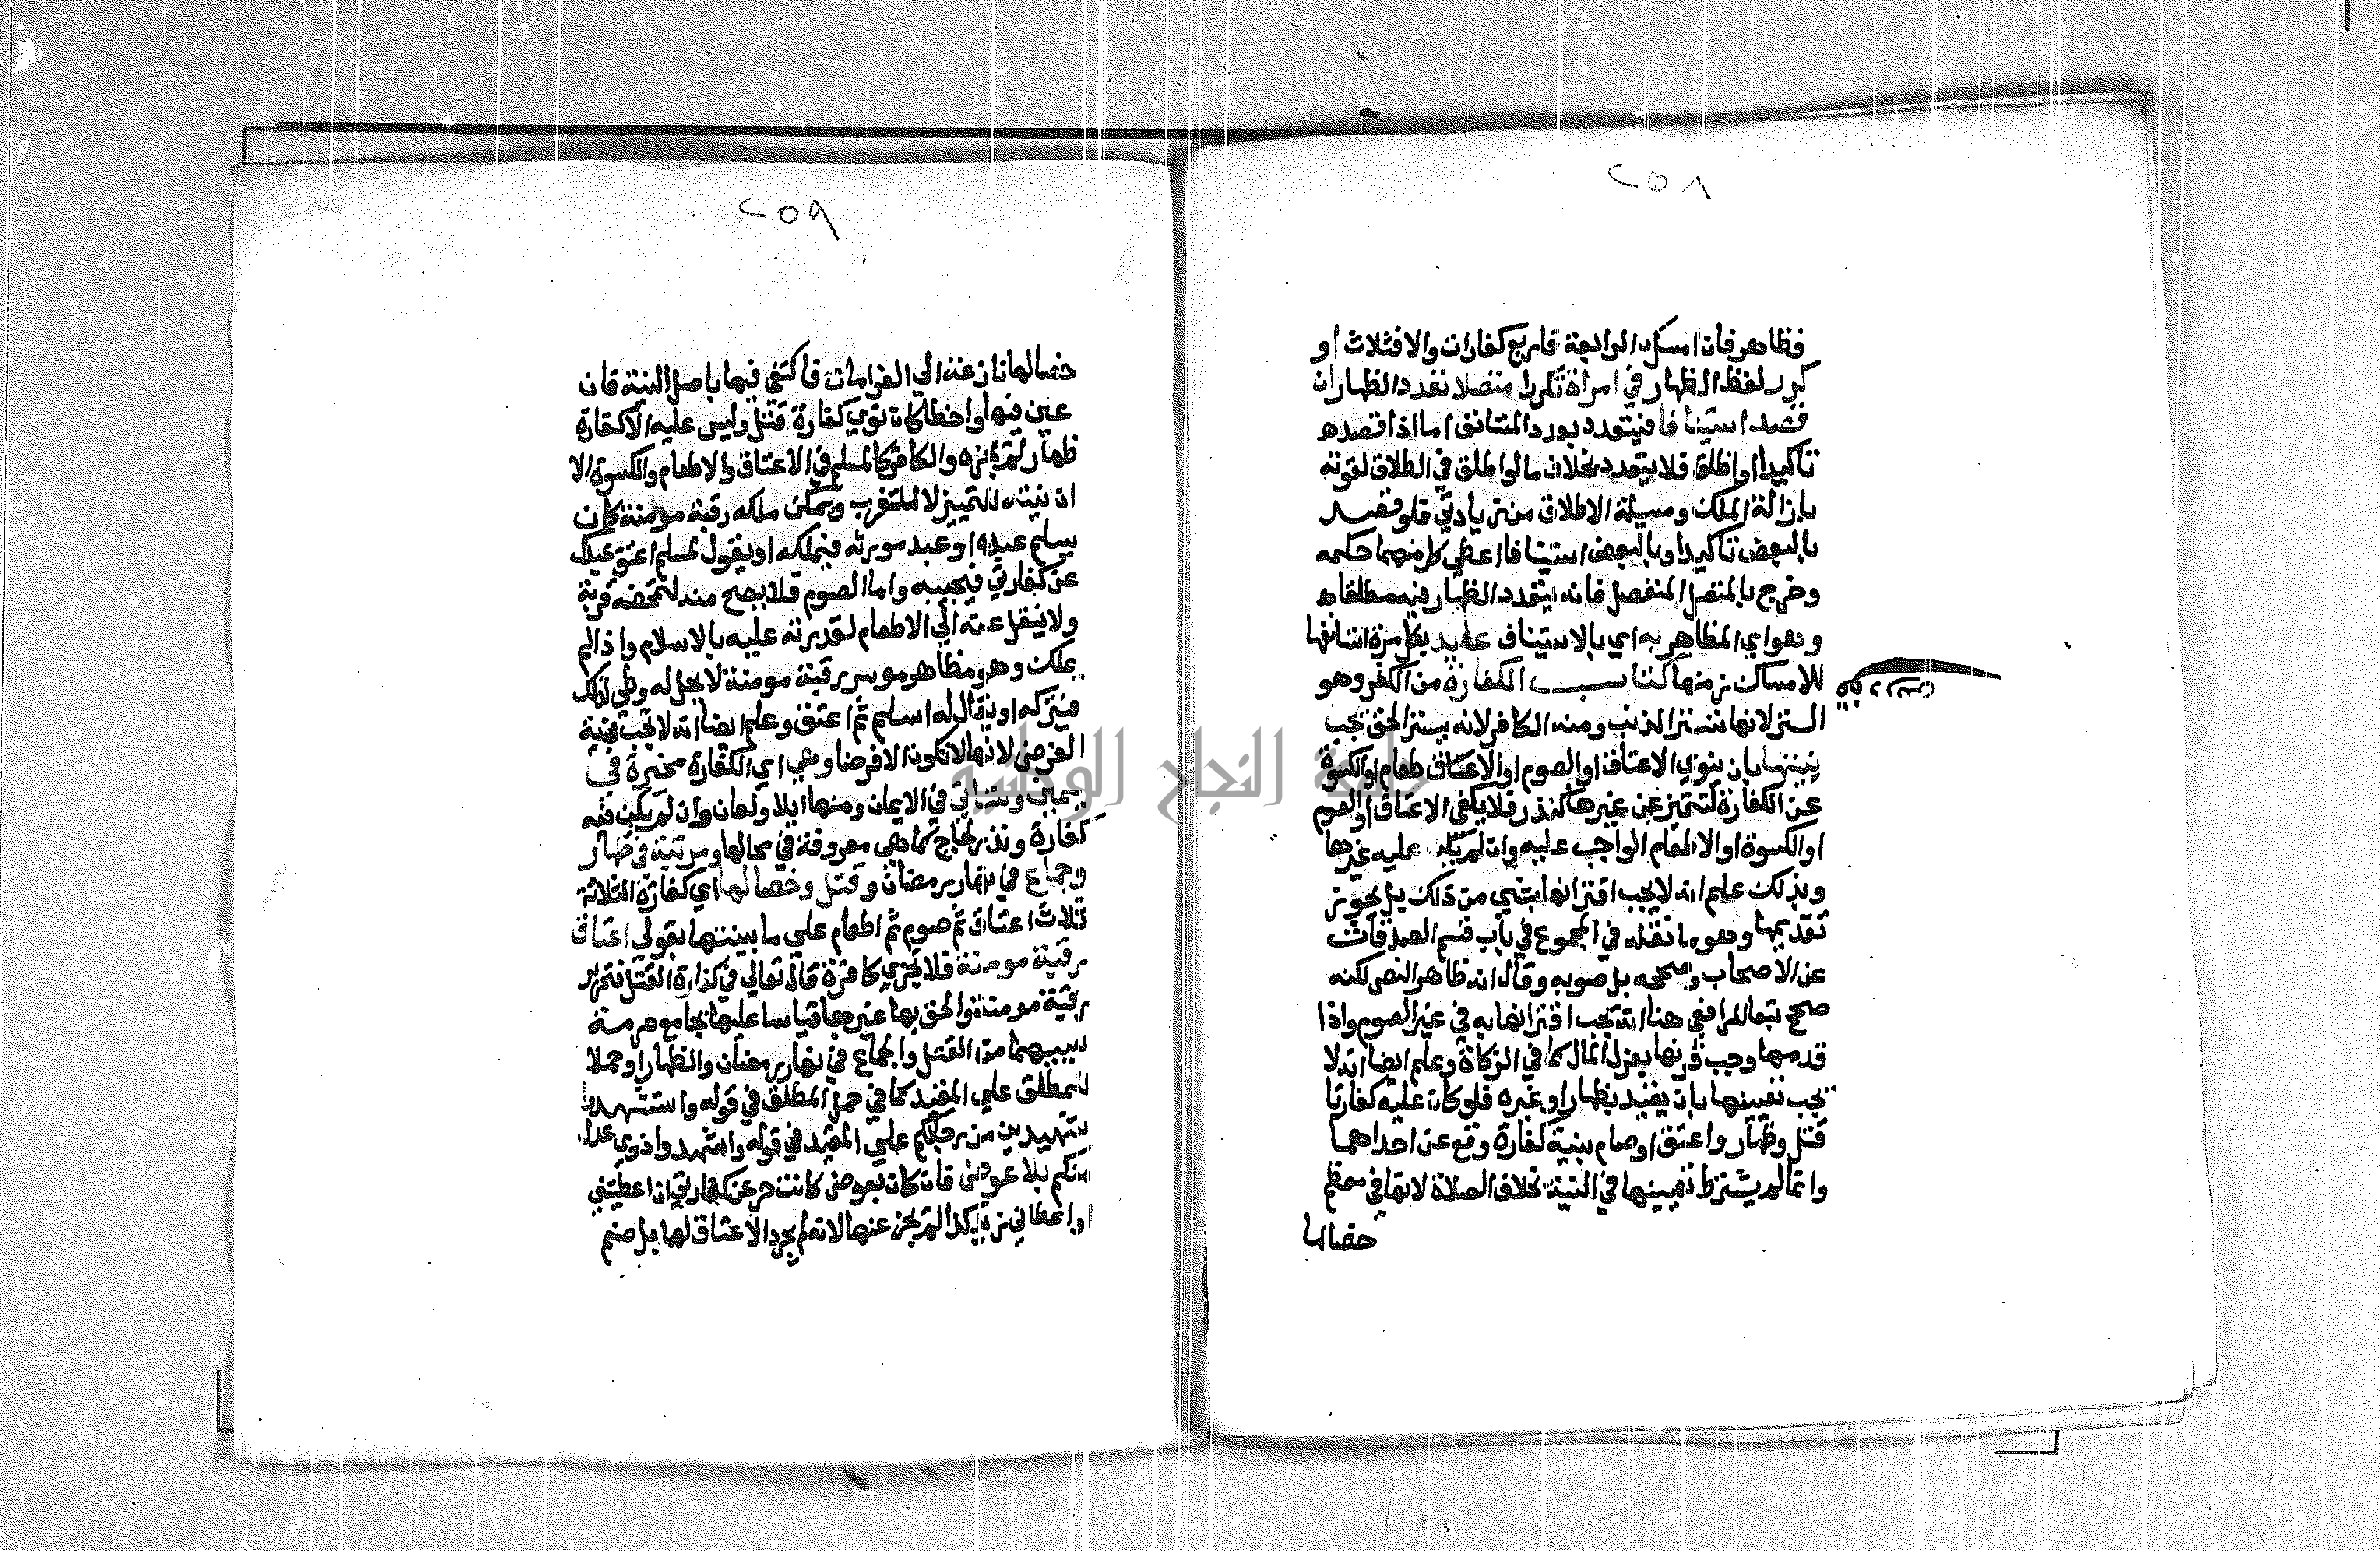 ٢٥٨
فظاهر فان امسك الرابعة فاربع كفارات والا فثلاث او
كرر لفظ الظهار في امراة تكريرا متصلا تعدد الظهار ان
قصد استينافا فيتعدد بعدد المستانف اما اذا قصد
تاكيدا او اطلق فلا يتعدد بخلاف ما لو اطلق في الطلاق لقوته
بازالة الملك ومسيلة الاطلاق من زيادتي فلو قصد
بالبعض تاكيدا وبالبعض استينافا اعطي كل منهما حكمه
وخرج بالمتصل المنفصل فانه يتعدد الظهار فيه مطلقا
وهو اي المظاهر به اي بالاستيناف عايد بكل مرة استانفها
للامساك زمنها كتاب الكفارة من الكفر وهو
الستر لانها تستر الذنب ومنه الكافر لانه يستر الحق تجب
نيتها بان ينوي الاعتاق او الصوم او الاطعام او الكسوة
عن الكفارة لتتميز عن غيرها كنذر فلا يكفي الاعتاق او الصوم
او الكسوة او الاطعام الواجب عليه وان لم يكن عليه غيرها
وبذلك علم انه لا يجب اقترانها بشي من ذلك بل يجوز
تقديمها وهو ما نقله في المجموع في باب قسم الصدقات
عن الاصحاب وصححه بل صوبه وقال انه ظاهر النص لكنه
صحح تبعا للرافعي هنا انه يجب اقترانها به في غير الصوم واذا
قدمها وجب قرنها بعزل المال كما في الزكاة وعلم ايضا انه لا
يجب تعيينها بان يقيد بظهار او غيره فلو كان عليه كفارتا
قتل وظهار واعتق او صام بنية كفارة وقع عن احداهما
وانما لم يشترط تعيينها في النية بخلاف الصلاة لانها في معظم
خصالها
٢٥٩
خصالها نازعة الي الغرامات فاكتفي فيها باصل النية فان
عين فيها واخطا كان نوي كفارة قتل وليس عليه الا كفارة
ظهار لم يجزه والكافر كالمسلم في الاعتاق والاطعام والكسوة الا
ان نيته للتمييز لا للتقرب ويمكن ملكه رقبة مومنة كان
يسلم عبده او عبد مورثه فيملكه او يقول لمسلم اعتق عبدك
عن كفارتي فيجيبه واما الصوم فلا يصح منه لتمحضه قربة
ولا ينتقل عنه الي الاطعام لقدرته عليه بالاسلام واذا لم
يملك وهو مظاهر موسر رقبة مومنة لا يحل له وطي لذلك
فيتركه او يقال له اسلم ثم اعتق وعلم ايضا انه لا تجب فيه نية
الفرض لانها لا تكون الا فرضا وهي اي الكفارة مخيرة في
يمين وستاتي في الايمان ومنها ايلا ولعان وان لم يكن فيه
كفارة ونذر لجاج كما هي معروفة في محالها ومرتبة في ظهار
وجماع في نهار رمضان وقتل وخصالها اي كفارة الثلاثة
ثلاث اعتاق ثم صوم ثم اطعام علي ما بينتها بقولي اعتاق
رقبة مومنة فلا يجزي كافرة قال تعالي في كفارة القتل فتحرير
رقبة مومنة والحق بها غيرها قياسا عليها بجامع حرمة
سببيهما من القتل والجماع في نهار رمضان والظهار او حملا
للمطلق علي المقيد كما في حمل المطلق في قوله واستشهدوا
شهيدين من رجالكم علي المقيد في قوله واشهدوا ذوي عدل
منكم بلا عوض فان كان بعوض كانت حر عن كفارتي ان اعطيتني
او اعطاني زيد كذا لم يجز عنها لانه لم يجرد الاعتاق لها بل ضم
جامعة النجاح الوطنية